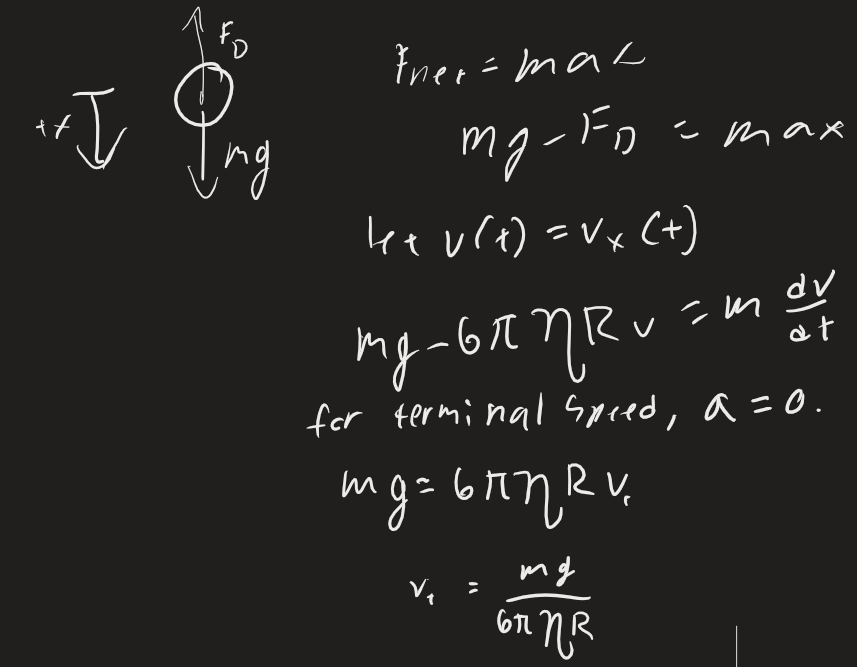 F_D
+x
mg
F_net = ma<
mg - F_D = max
let v(t) = v_x(t)
mg - 6πηRv = m dv/dt
for terminal speed, a = 0.
mg = 6πηRv_t
v_t = mg/6πηR